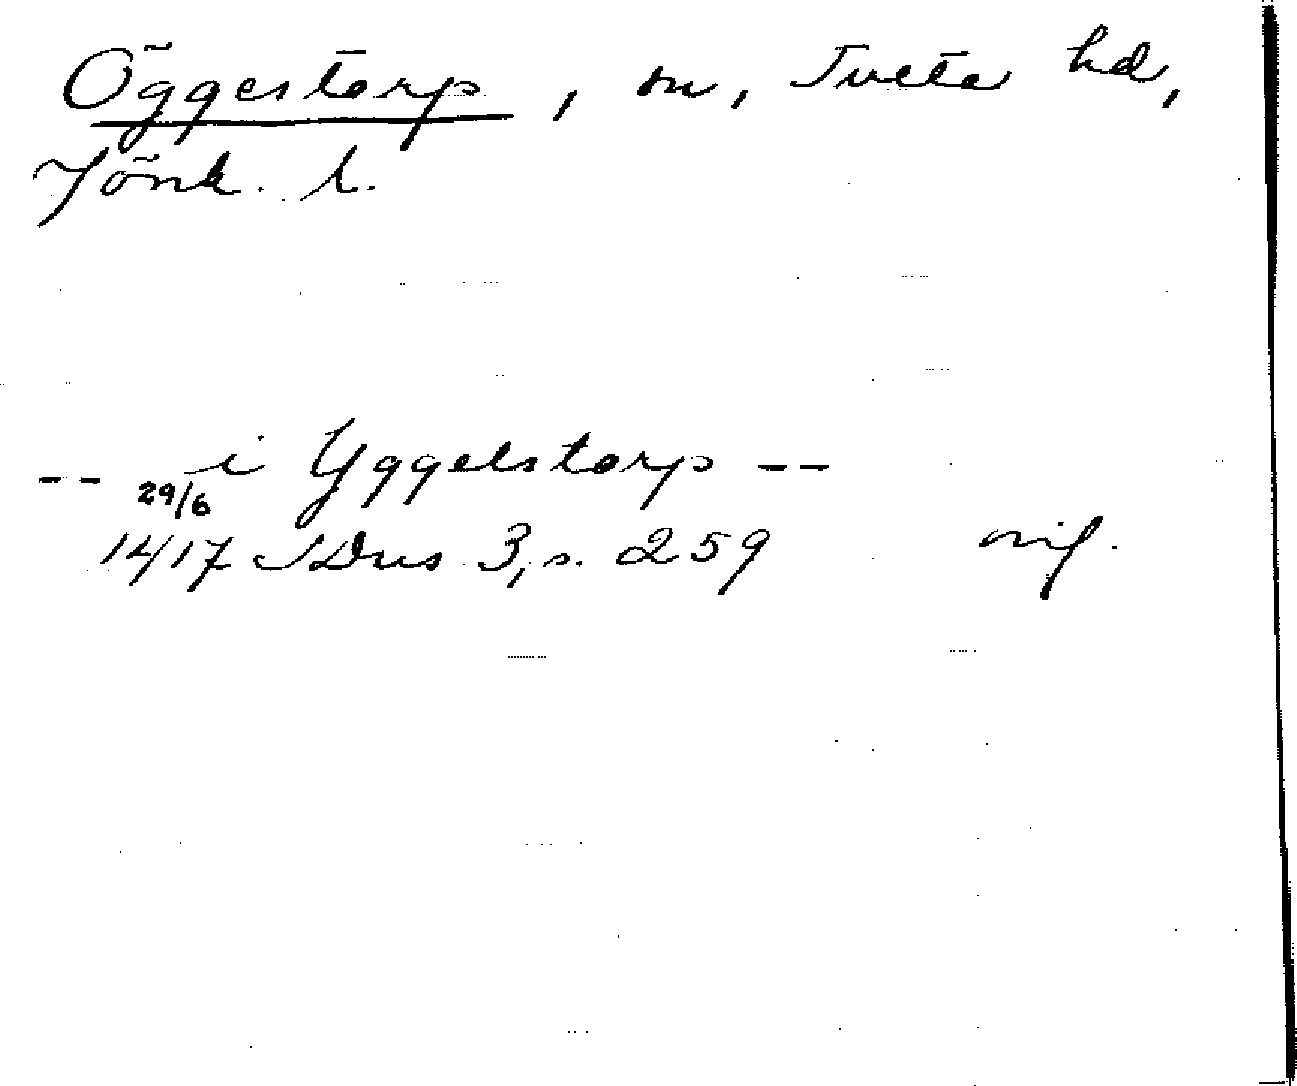 Öggestorp, sn, Tveta hd,
Jönk. l.
-- i Yggelstorp --
29/6
1417 SDns 3, s. 259 orig.